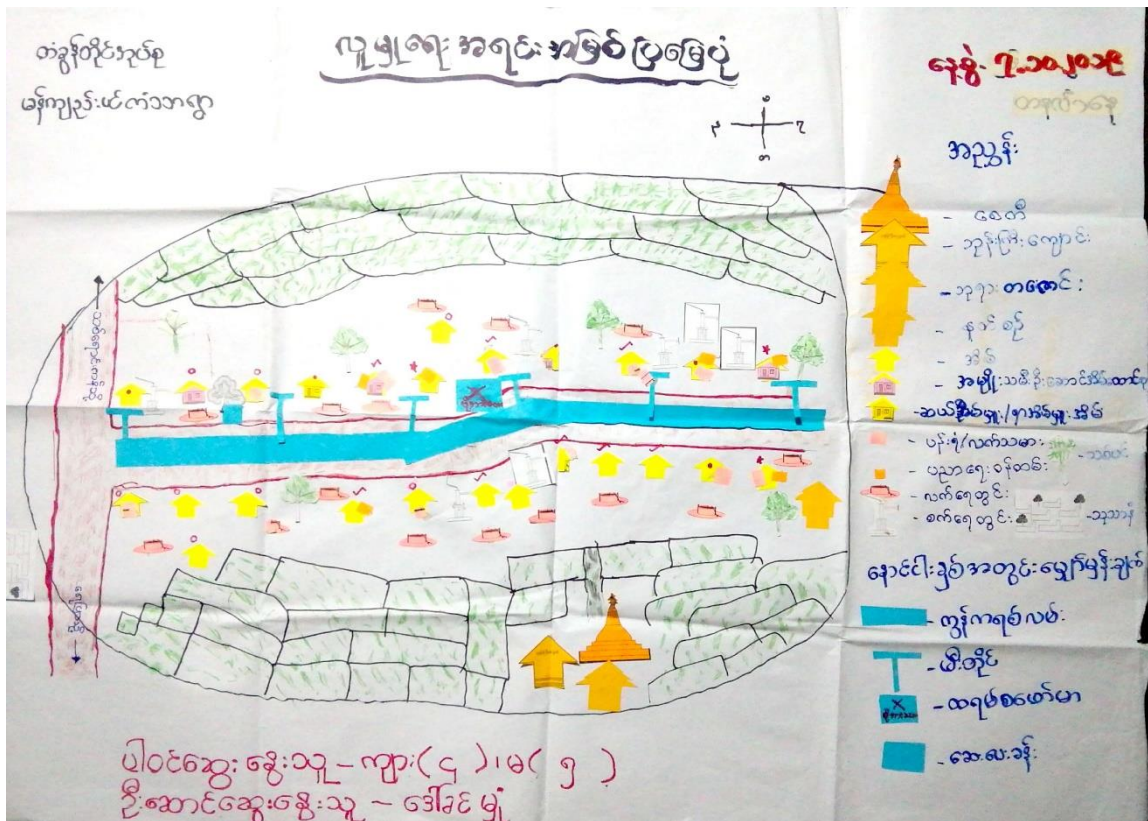 တံခွန်တိုင်အုပ်စု
မန်ကျည်းယင်ကံသာရွာ
လူမှုရေးအရင်းအမြစ်ပြမြေပုံ
နေ့စွဲ. ၇.၁၀.၂၀၁၉
တနင်္လာနေ့
အညွှန်း
- စေတီ
- ဘုန်းကြီးကျောင်း
- ဘုရားတဇောင်း
- နတ်စဉ်
- အိမ်
- အမျိုးသမီးဦးဆောင်အိမ်ထောင်
- ဆယ်အိမ်မှူး/ရာအိမ်မှူးအိမ်
- ပန်းရံ/လက်သမား
- သစ်ပင်
- ပညာရေးဝန်ထမ်း
- လက်ရေတွင်း
- စက်ရေတွင်း
- သုသာန်
နောင်ငါးနှစ်အတွင်းမျှော်မှန်းချက်
- ကွန်ကရစ်လမ်း
- မီးတိုင်
- ထရမ်စဖော်မာ
- ဆေးပေးခန်း
ပါဝင်ဆွေးနွေးသူ – ကျား(၄)၊ မ(၅)
ဦးဆောင်ဆွေးနွေးသူ – ဒေါ်ခင်မျှုံ